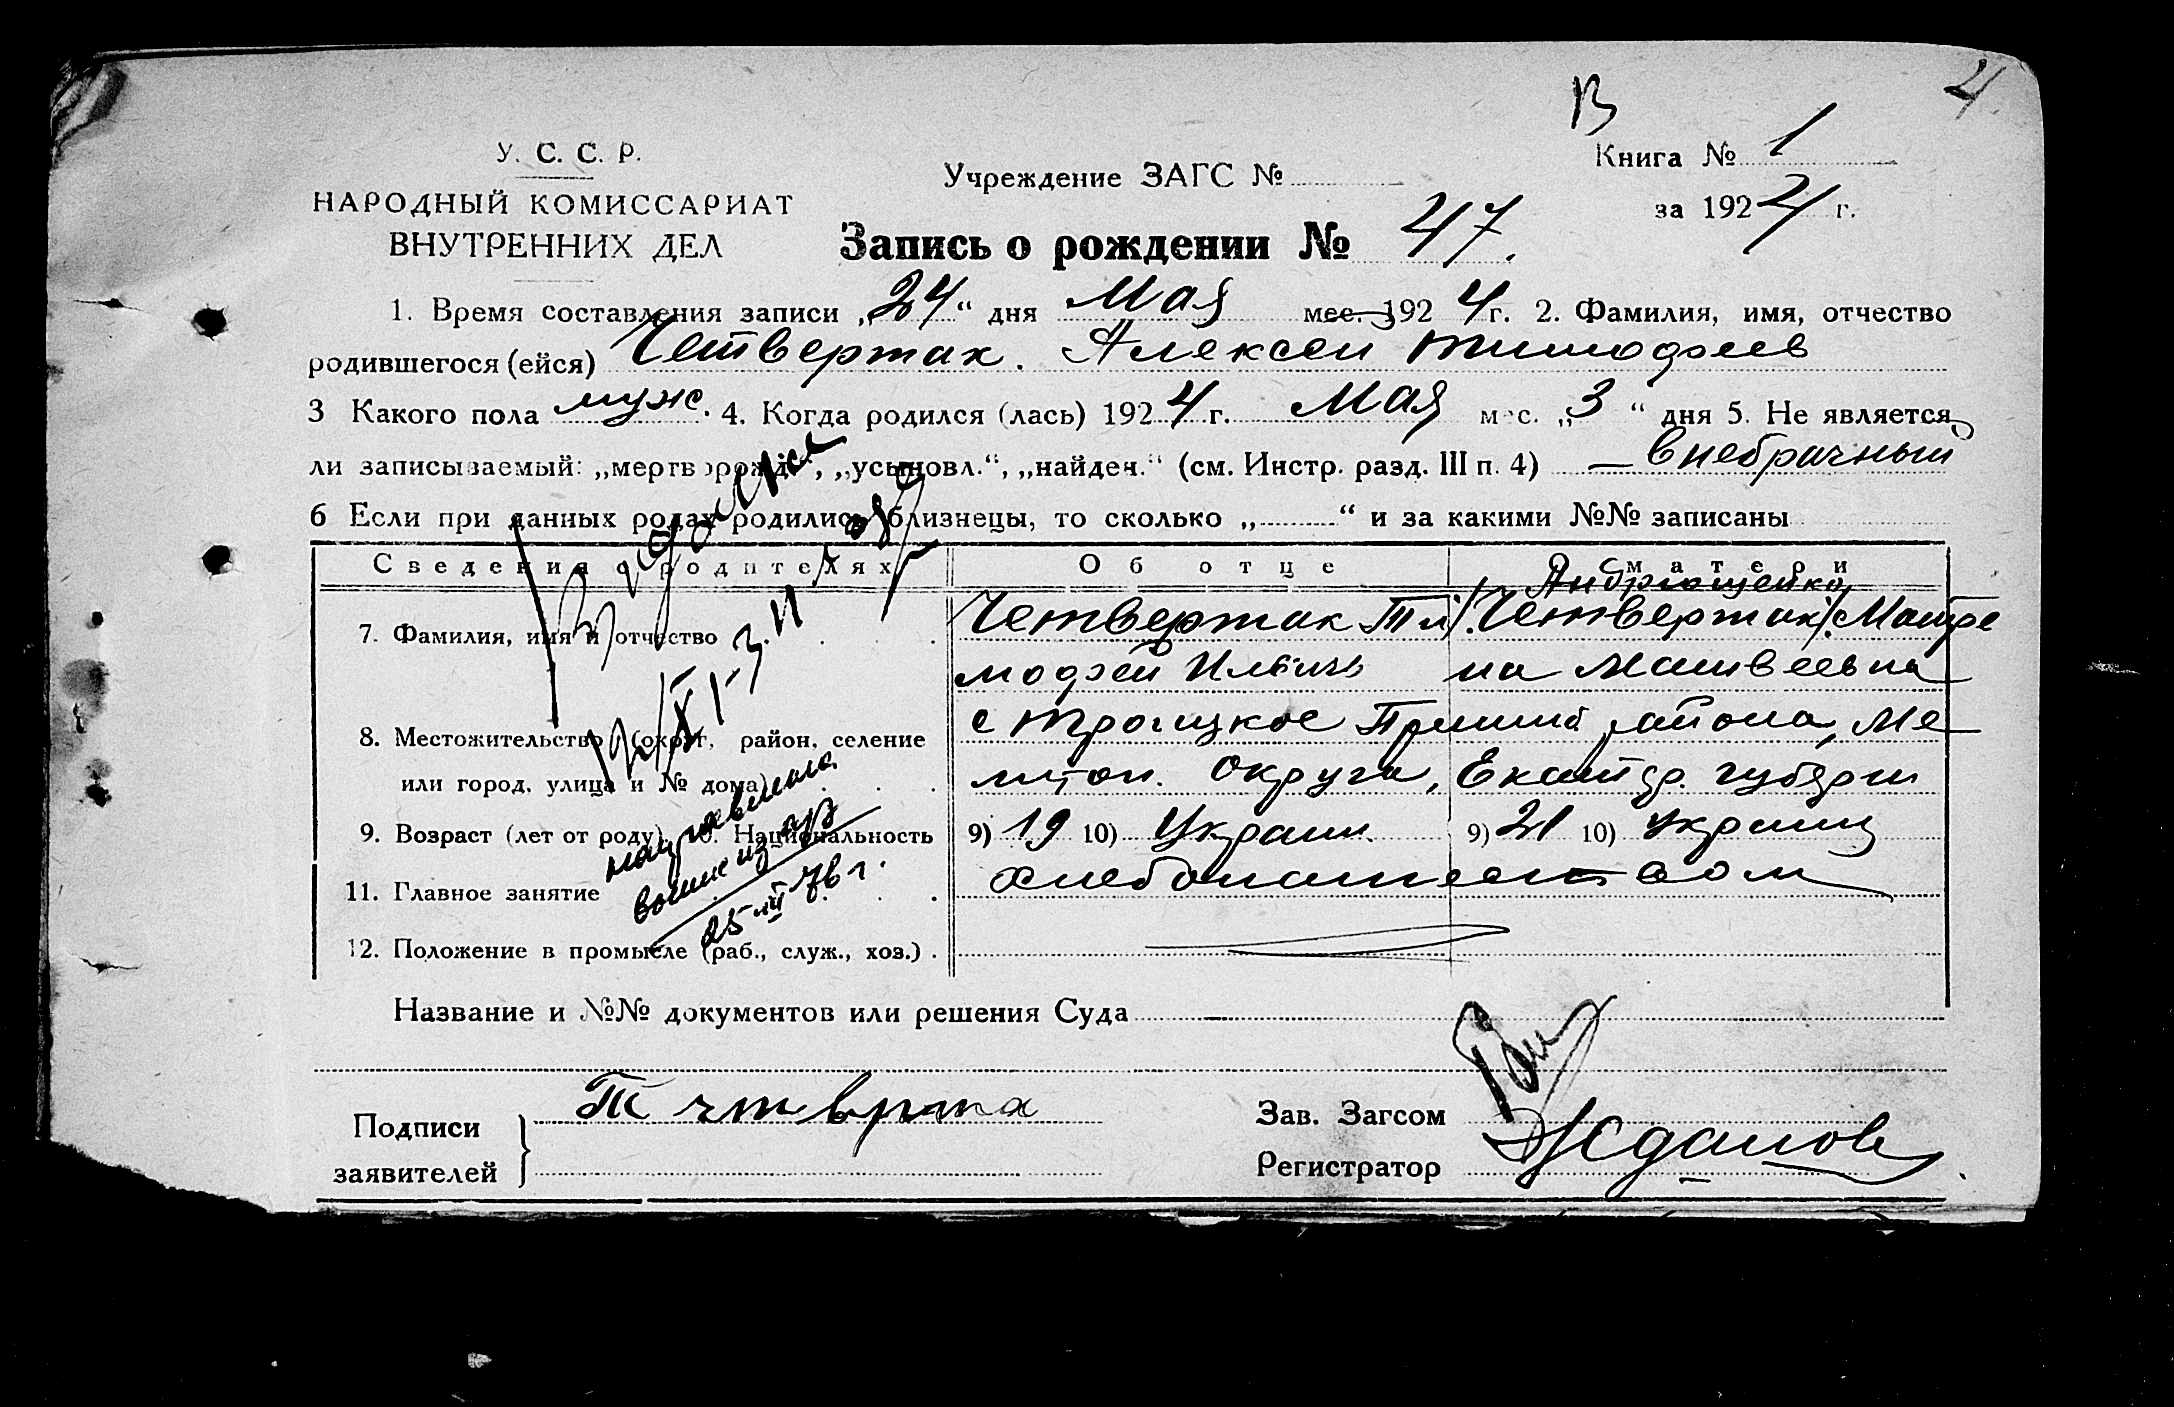 В
4
У. С. С. Р.
НАРОДНЫЙ КОМИССАРИАТ
ВНУТРЕННИХ ДЕЛ
Учреждение ЗАГС №
Книга № 1
за 1924 г.
Запись о рождении № 47.
1. Время составления записи „24“ дня Мая мес. 1924 г. 2. Фамилия, имя, отчество
родившегося (ейся) Четвертак. Алексей Тимофеев
3 Какого пола муж. 4. Когда родился (лась) 1924 г. Мая мес. „3“ дня 5. Не является
ли записываемый: „мертворожд.“, „усыновл.“, „найден.“ (см. Инстр. разд. III п. 4) — внебрачный
6 Если при данных родах родились близнецы, то сколько „......“ и за какими №№ записаны
Сведения о родителях Об отце О матери
Андрющенко
7. Фамилия, имя и отчество Четвертак Ти /Четвертак/. Матре
мофей Ильичь на Матвеевна
8. Местожительство (округ, район, селение с Троицкое района, Ме
или город, улица и № дома) литоп. округа, Екатер. губерн
9. Возраст (лет от роду) 10. Национальность 9) 19 10) Украин. 9) 21 10) Украинц
11. Главное занятие хлебопашеством
12. Положение в промысле (раб., служ., хоз.)
25-III 76 г.
Название и №№ документов или решения Суда
Подписи
заявителей
Т чтвртак
Зав. Загсом
Регистратор Жданов